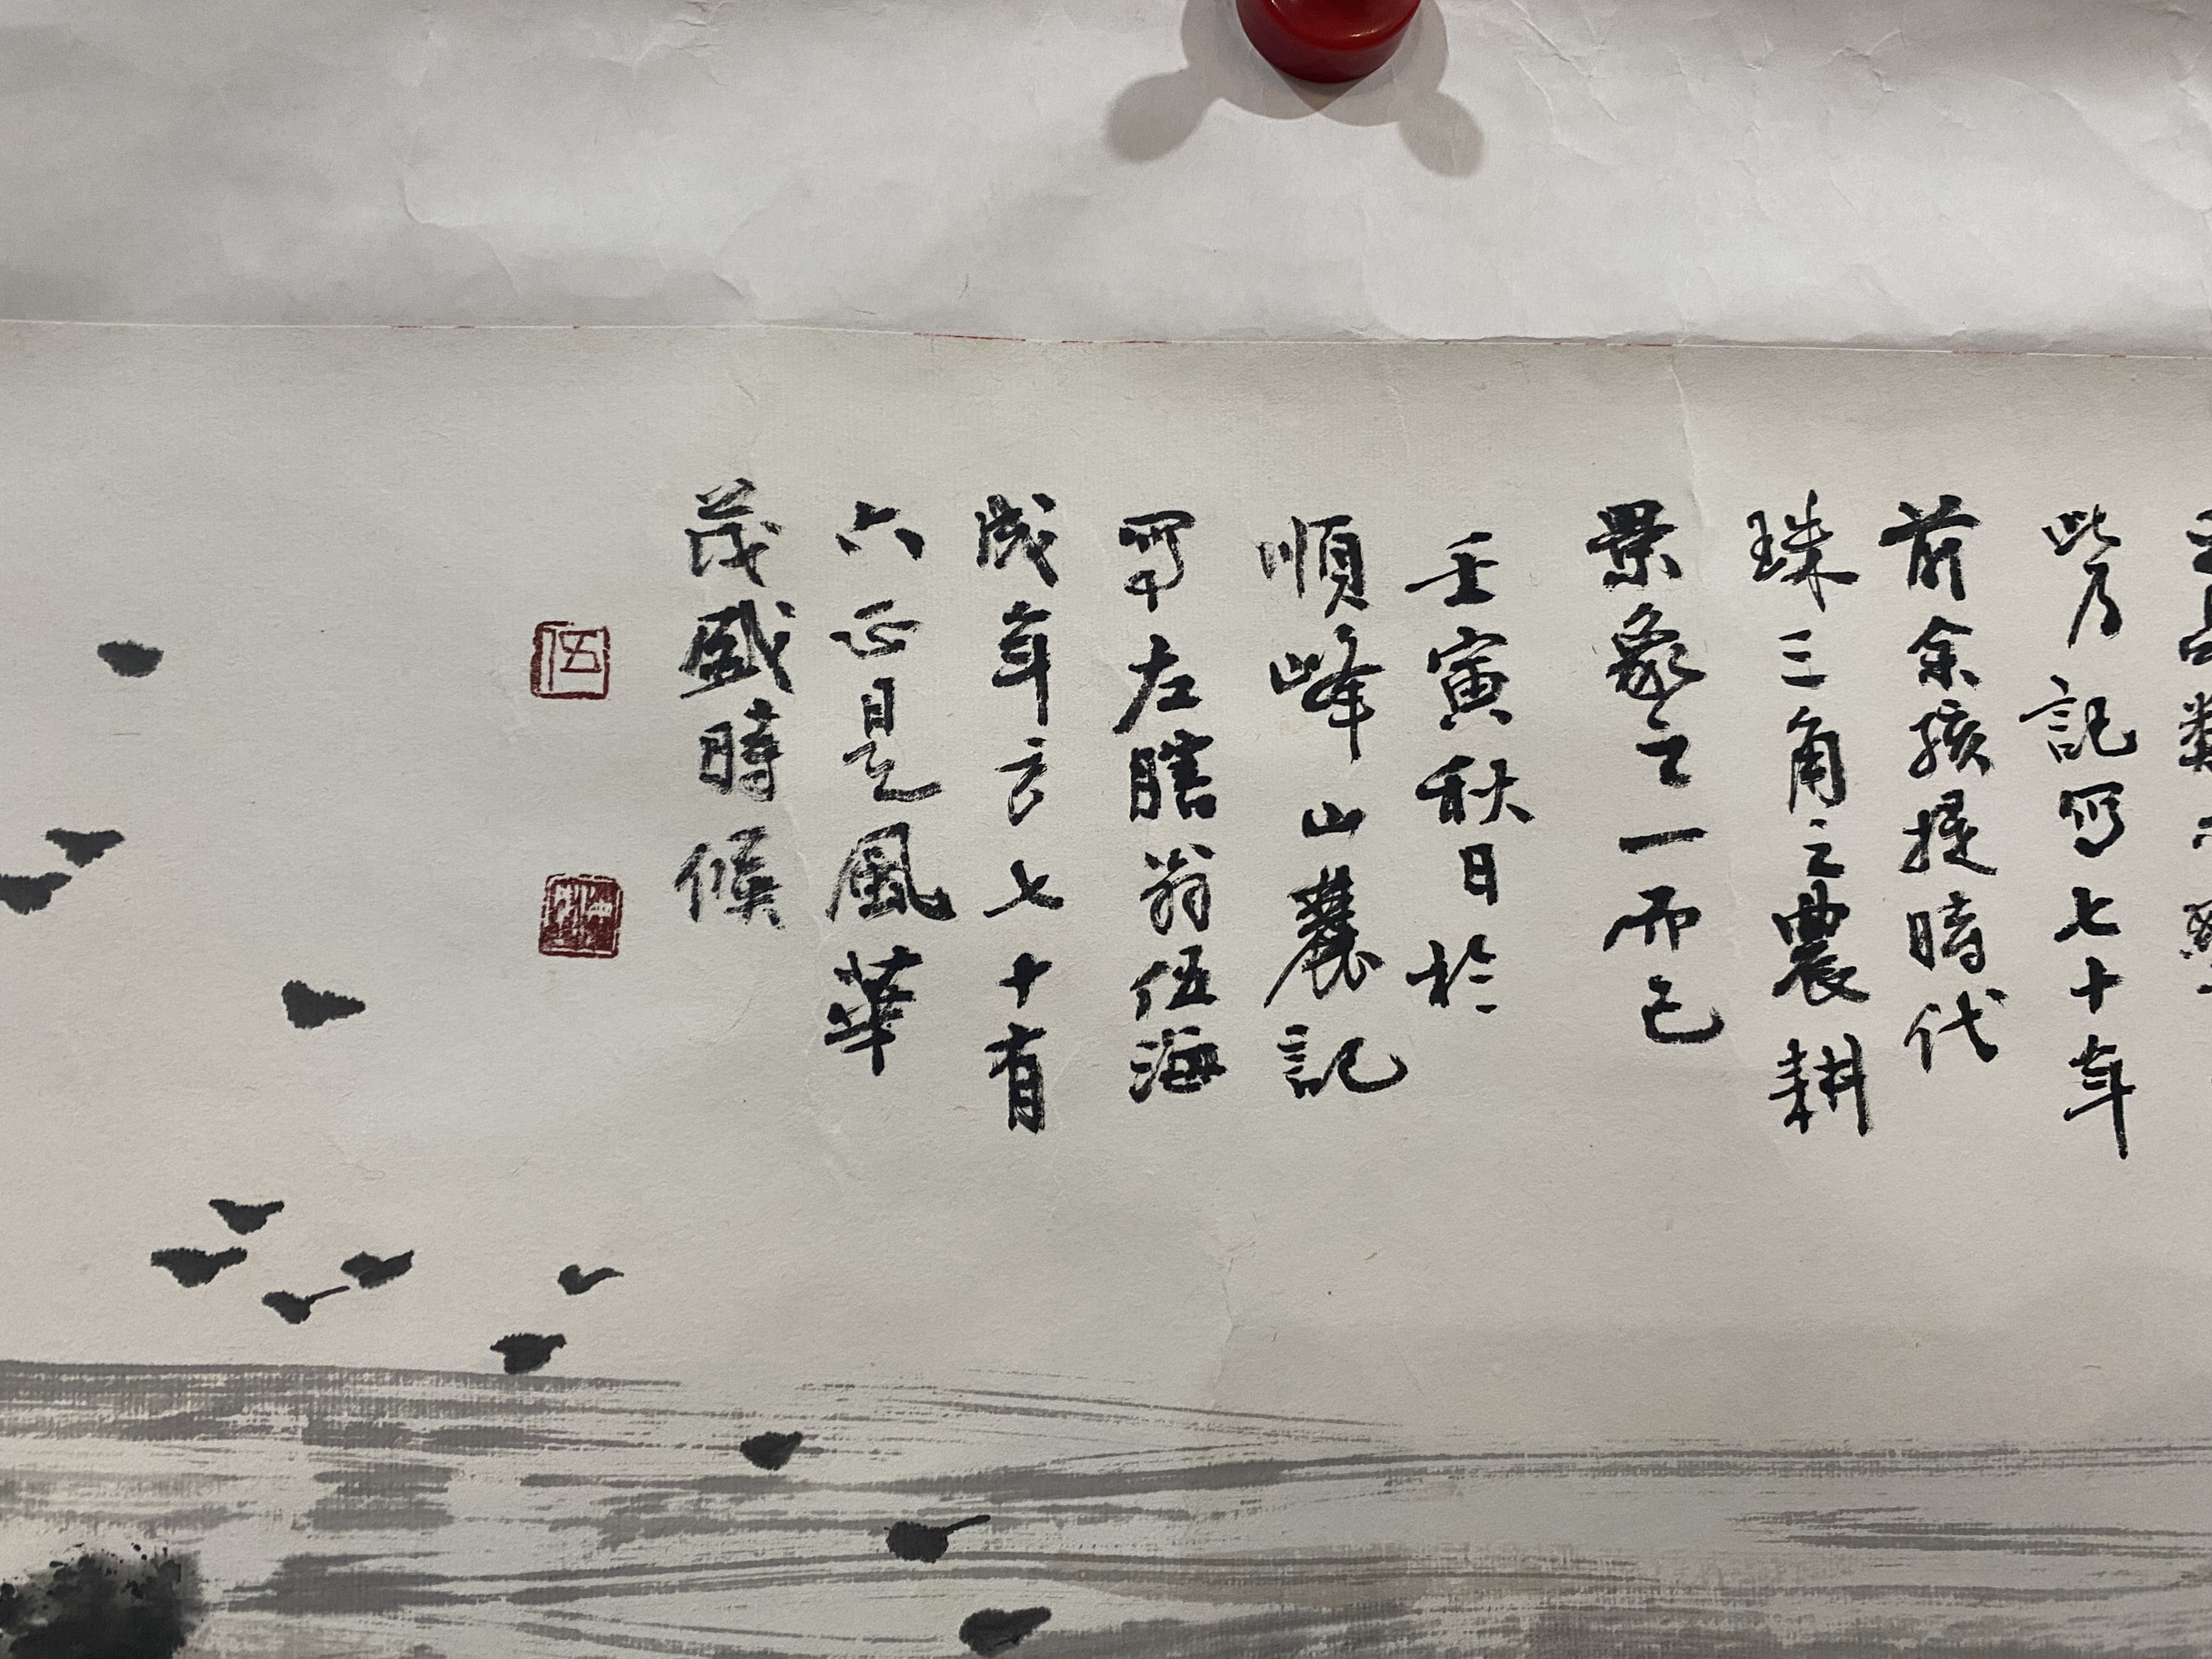 此乃記写七十年
前余孩提時代
珠三角之農耕
景象之一而已
壬寅秋日於
順峰山麓記
写左瞎翁伍海
成年方七十有
六正是風華
茂盛時候
伍